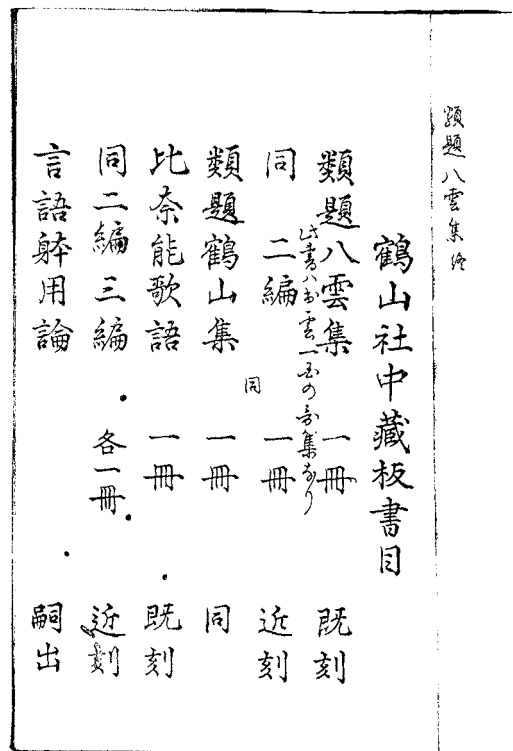 類題八雲集終
鶴山社中藏板書目
類題八雲集 一冊 既刻
此書ハ出雲一国の哥集なり
同 二編 一冊 近刻
同
類題鶴山集 一冊 同
比奈能歌語 一冊 既刻
同二編 三編 各一冊 近刻
言語躰用論 嗣出